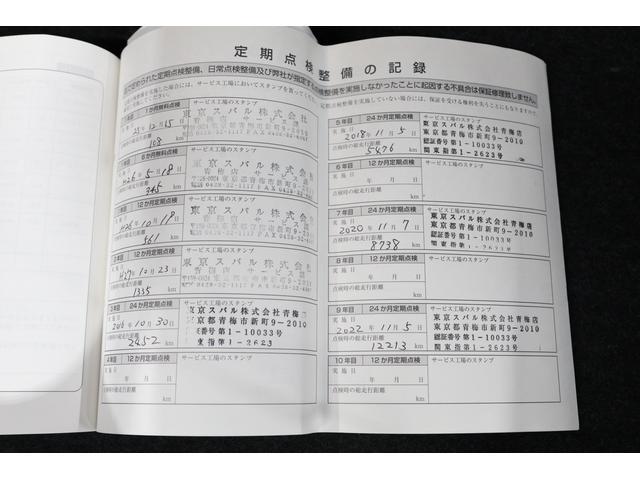 定期点検整備の記録
サービス工場のスタンプ
1か月無料点検
25年12月15日
点検時の総走行距離
108 km
東京スバル株式会社
6か月無料点検
サービス工場のスタンプ
H26年5月18日
点検時の総走行距離
345 km
東京スバル株式会社
青梅店 サービス課
東京都青梅市新町9-2010
12か月定期点検
サービス工場のスタンプ
H26年10月18日
点検時の総走行距離
561 km
東京スバル株式会社
12か月定期点検
サービス工場のスタンプ
H27年10月23日
点検時の総走行距離
1335 km
東京スバル株式会社
3年目 24か月定期点検
サービス工場のスタンプ
実施日
2016年10月30日
点検時の総走行距離
2452 km
東京スバル株式会社青梅店
東京都青梅市新町9-2010
証番号第1-10033号
東指第1-2623号
4年目 12か月定期点検
サービス工場のスタンプ
実施日
年 月 日
点検時の総走行距離
km
5年目 24か月定期点検
サービス工場のスタンプ
実施日
2018年11月5日
点検時の総走行距離
5476 km
東京スバル株式会社青梅店
東京都青梅市新町9-2010
認証番号第1-10033号
関東指第1-2623号
6年目 12か月定期点検
サービス工場のスタンプ
実施日
年 月 日
点検時の総走行距離
km
7年目 24か月定期点検
サービス工場のスタンプ
実施日
2020年11月7日
点検時の総走行距離
8738 km
東京スバル株式会社青梅店
東京都青梅市新町9-2010
認証番号第1-10033号
関東指第1-2623号
8年目 12か月定期点検
サービス工場のスタンプ
実施日
年 月 日
点検時の総走行距離
km
9年目 24か月定期点検
サービス工場のスタンプ
実施日
2022年11月5日
点検時の総走行距離
12213 km
東京スバル株式会社青梅店
東京都青梅市新町9-2010
認証番号第1-10033号
関東指第1-2623号
10年目 12か月定期点検
サービス工場のスタンプ
実施日
年 月 日
点検時の総走行距離
km